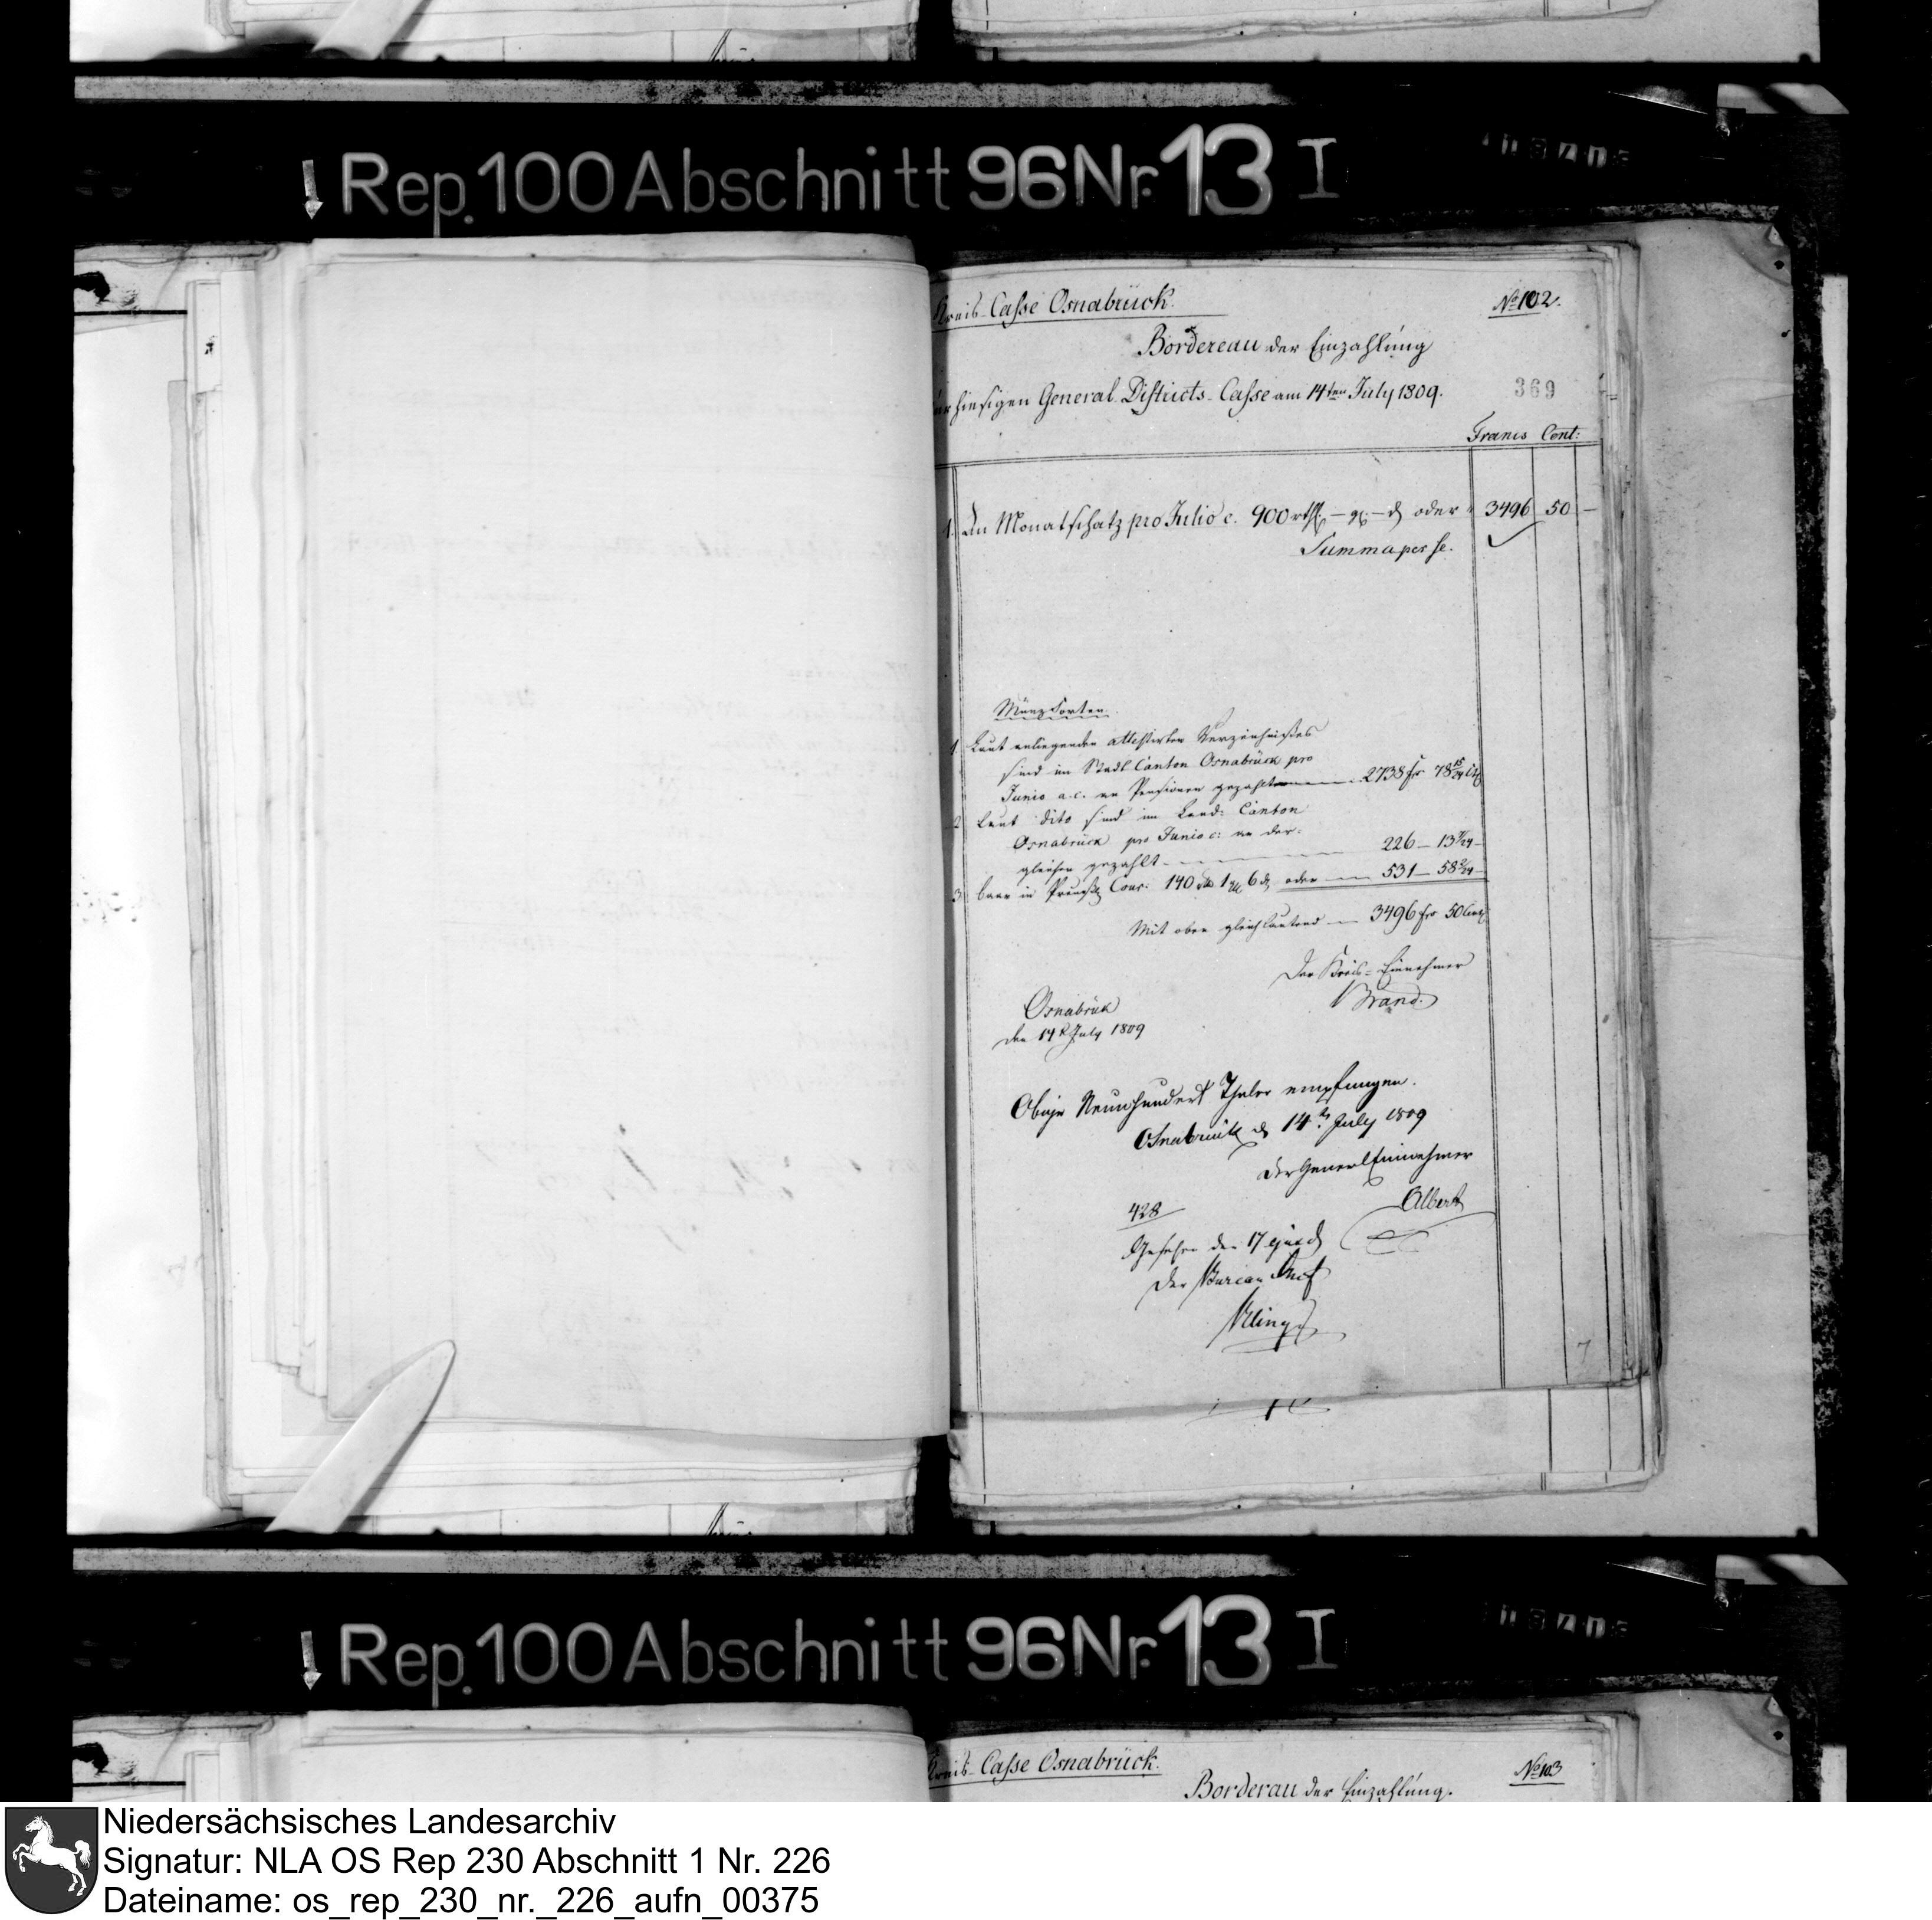 Rep. 100 Abschnitt 96 Nr. 13 I
Kreis-Casse Osnabrück.
No 102.
Bordereau der Einzahlung
zur hiesigen General-Districts-Casse am 14ten July 1809.
369
Francs Cent:
1. An Monatschatz pro Julio c. 900 rthlr. – gr. – d oder 3496 50 –
Summa per se.
Münz Sorten.
1 Laut anliegenden attestirten Verzeichnißes
sind im Stadt Canton Osnabrück pro
Junio a.c. an Pensionen gezahlt 2738 fr 78 15/24 Ct
2 Laut dito sind im Land: Canton
Osnabrück pro Junio c: an der-
gleichen gezahlt 226 – 13 /24 –
3 baar in Preuß Cour: 140 rth 1 gg 6 d, oder 531 – 58 /24 –
Mit oben gleichlautend 3496 frs 50 Cent
Der Kreis-Einnehmer
Brand.
Osnabrück
den 14t July 1809
Obige Neunhundert Thaler empfangen.
Osnabrück d 14t July 1809
Der General Einnehmer
Albert
428
Gesehen den 17 ejusd
Der Bureau Chef
Rep. 100 Abschnitt 96 Nr. 13 I
Kreis-Casse Osnabrück.
No 103
Borderau der Einzahlung.
Niedersächsisches Landesarchiv
Signatur: NLA OS Rep 230 Abschnitt 1 Nr. 226
Dateiname: os_rep_230_nr._226_aufn_00375